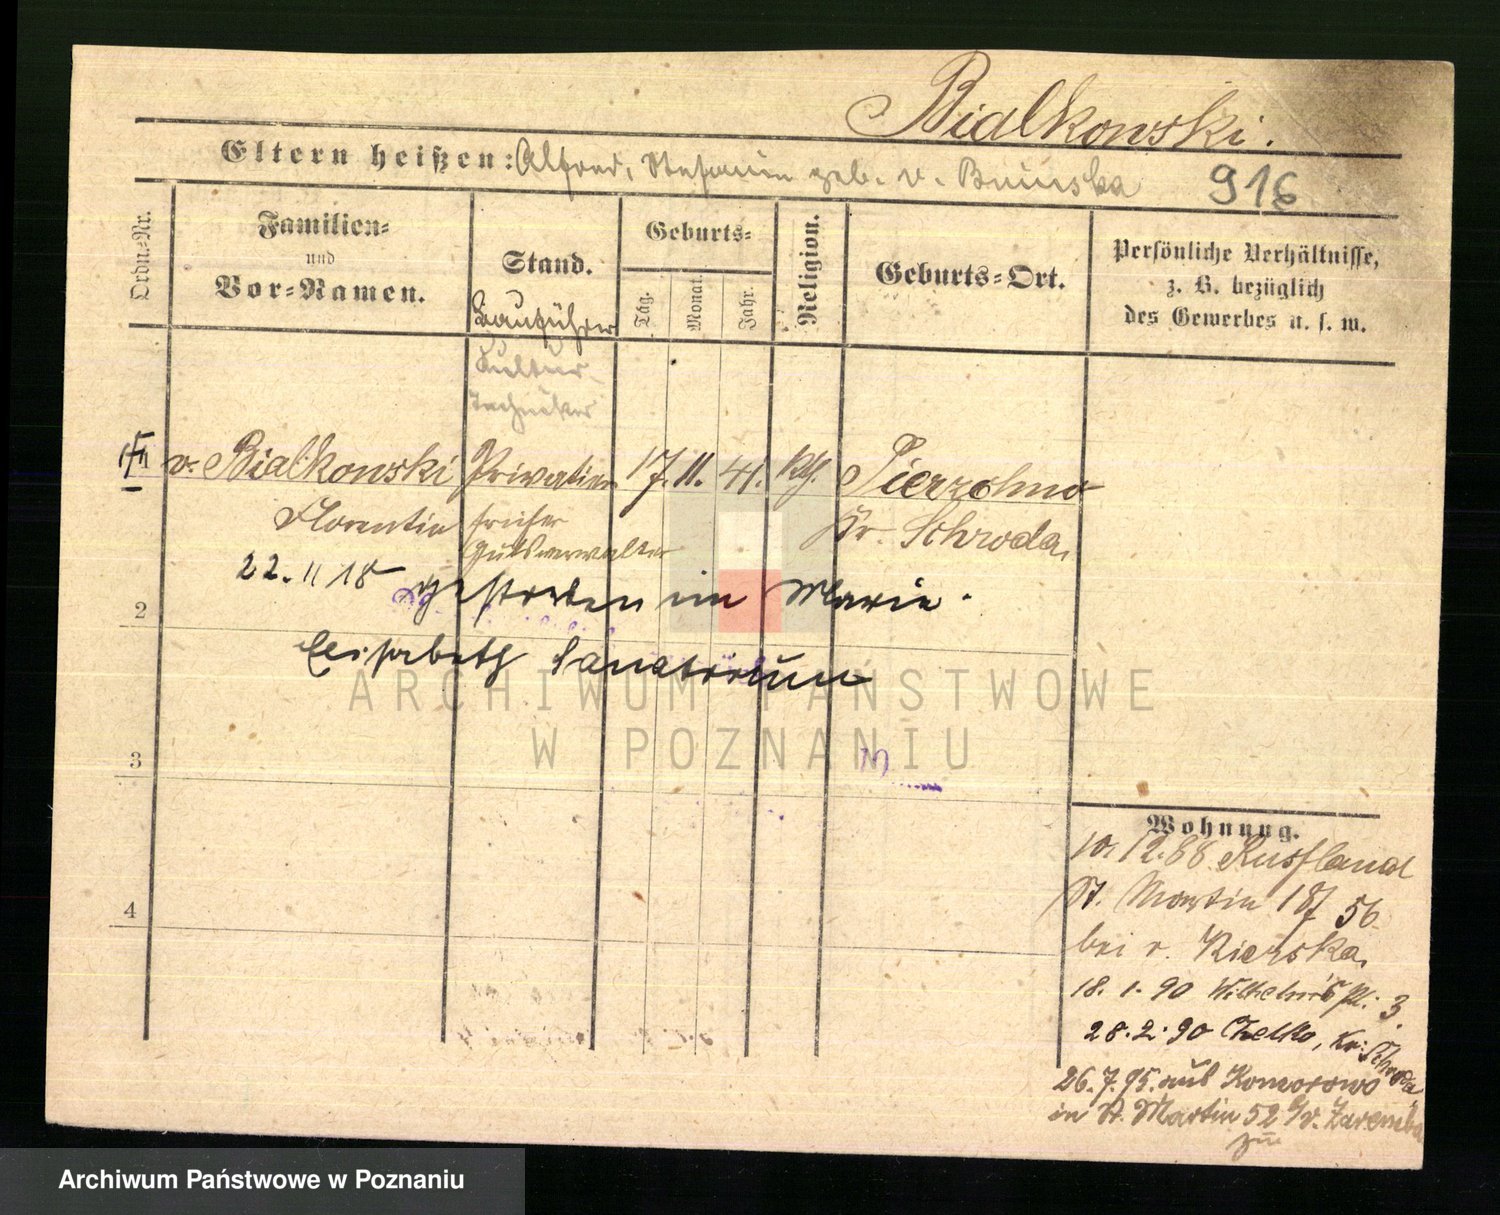 Bialkowski.
Eltern heißen: Alfred, Stefanie geb. v. Bninska
916
Ordn.-Nr.
Familien-
und
Vor-Namen.
Stand.
Geburts-
Tag.
Monat.
Jahr.
Religion.
Geburts-Ort.
Persönliche Verhältnisse,
z. B. bezüglich
des Gewerbes u. s. w.
Bauführer
Kultur-
techniker
v. Bialkowski Privatier 17. 11. 41. kth. Pierzchno
Florentin früher Kr. Schroda,
Gutsverwalter
22. 11 18 gestorben im Marie-
2
Elisabeth Sanatorium
3
4
Wohnung.
10. 12. 88 Russland
St. Martin 187 56
bei v. Kierska,
18. 1. 90 Wilhelms Pl. 3.
28. 2. 90 Chelko, Kr. Schroda
26. 7. 95. aus Komorowo
in St. Martin 52 v. Zaremba
ARCHIWUM PAŃSTWOWE
W POZNANIU
Archiwum Państwowe w Poznaniu